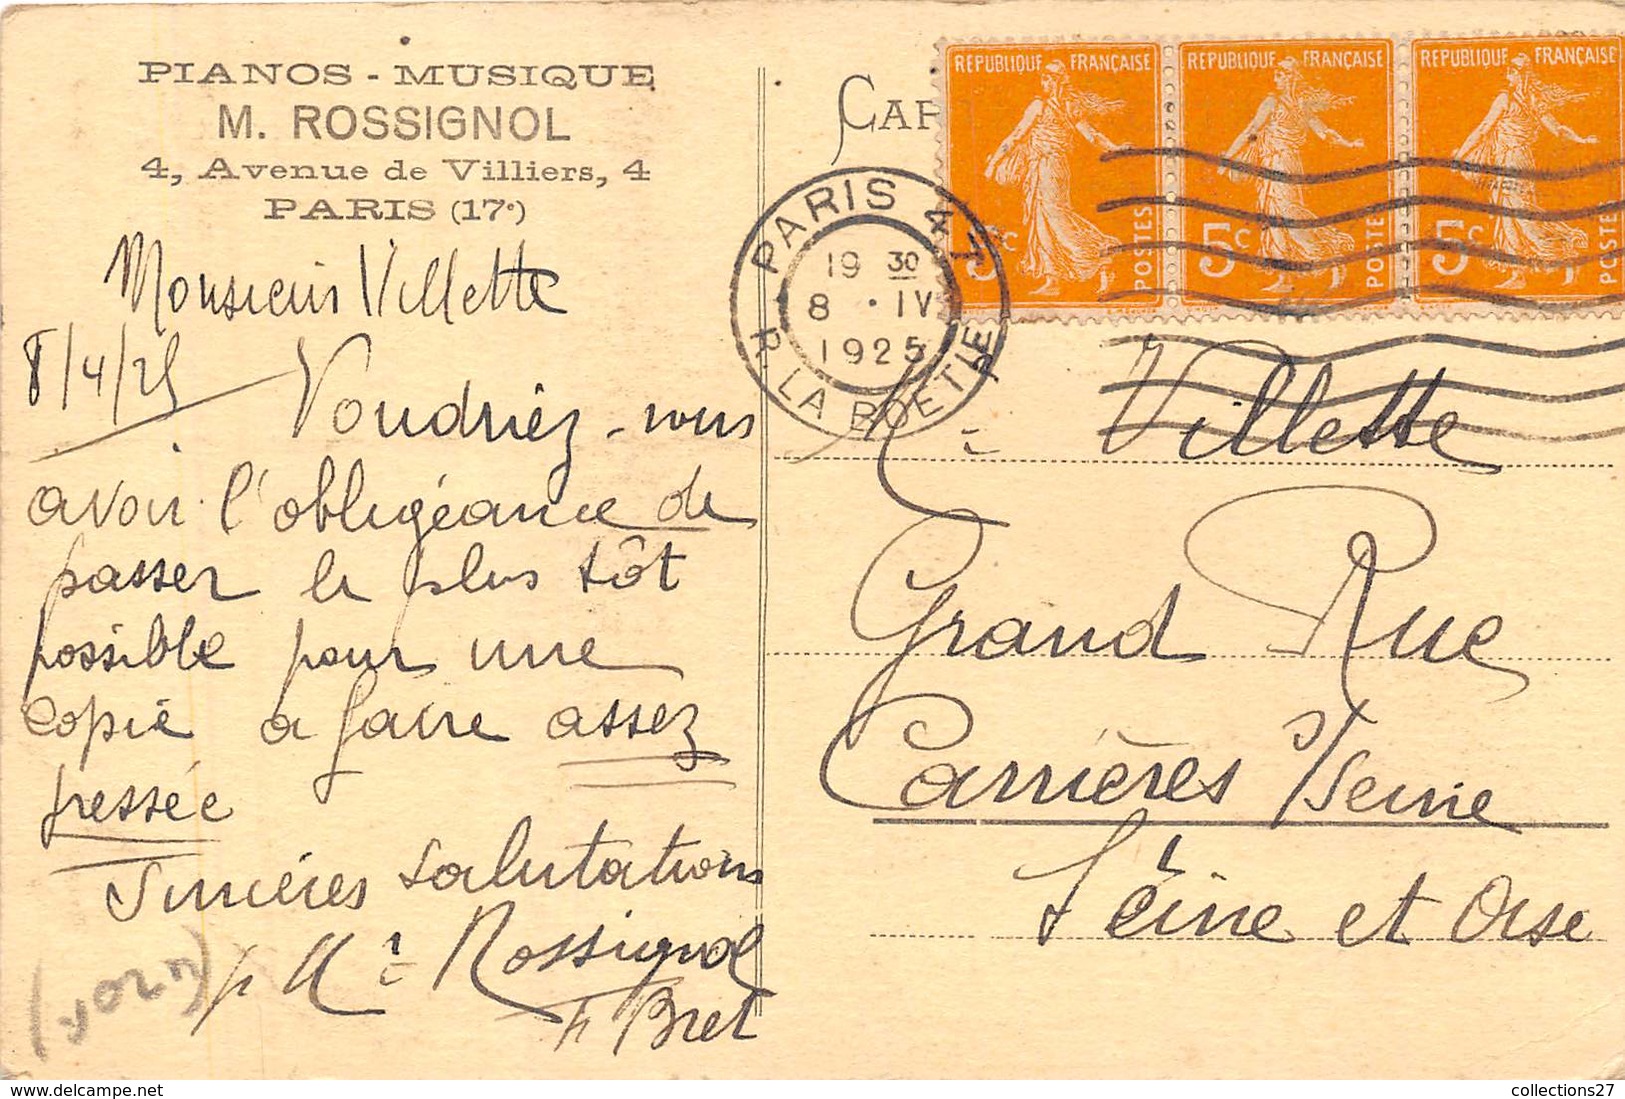 PIANOS - MUSIQUE
M. ROSSIGNOL
4, Avenue de Villiers, 4
PARIS (17e)
Monsieur Villette
8/4/25
Voudriez-vous
avoir l'obligéance de
passer le plus tôt
possible pour une
copie a faire assez
pressée
Sincères salutations
p Mr Rossignol
H Bret
CAR
REPUBLIQUE FRANÇAISE
5c
POSTES
REPUBLIQUE FRANÇAISE
5c
POSTES
REPUBLIQUE FRANÇAISE
5c
POSTES
PARIS 47
19 30
8 · IV
1925
R. LA BOETIE
Mr Villette
Grand Rue
Carrières s/Seine
Seine et Oise
collections27